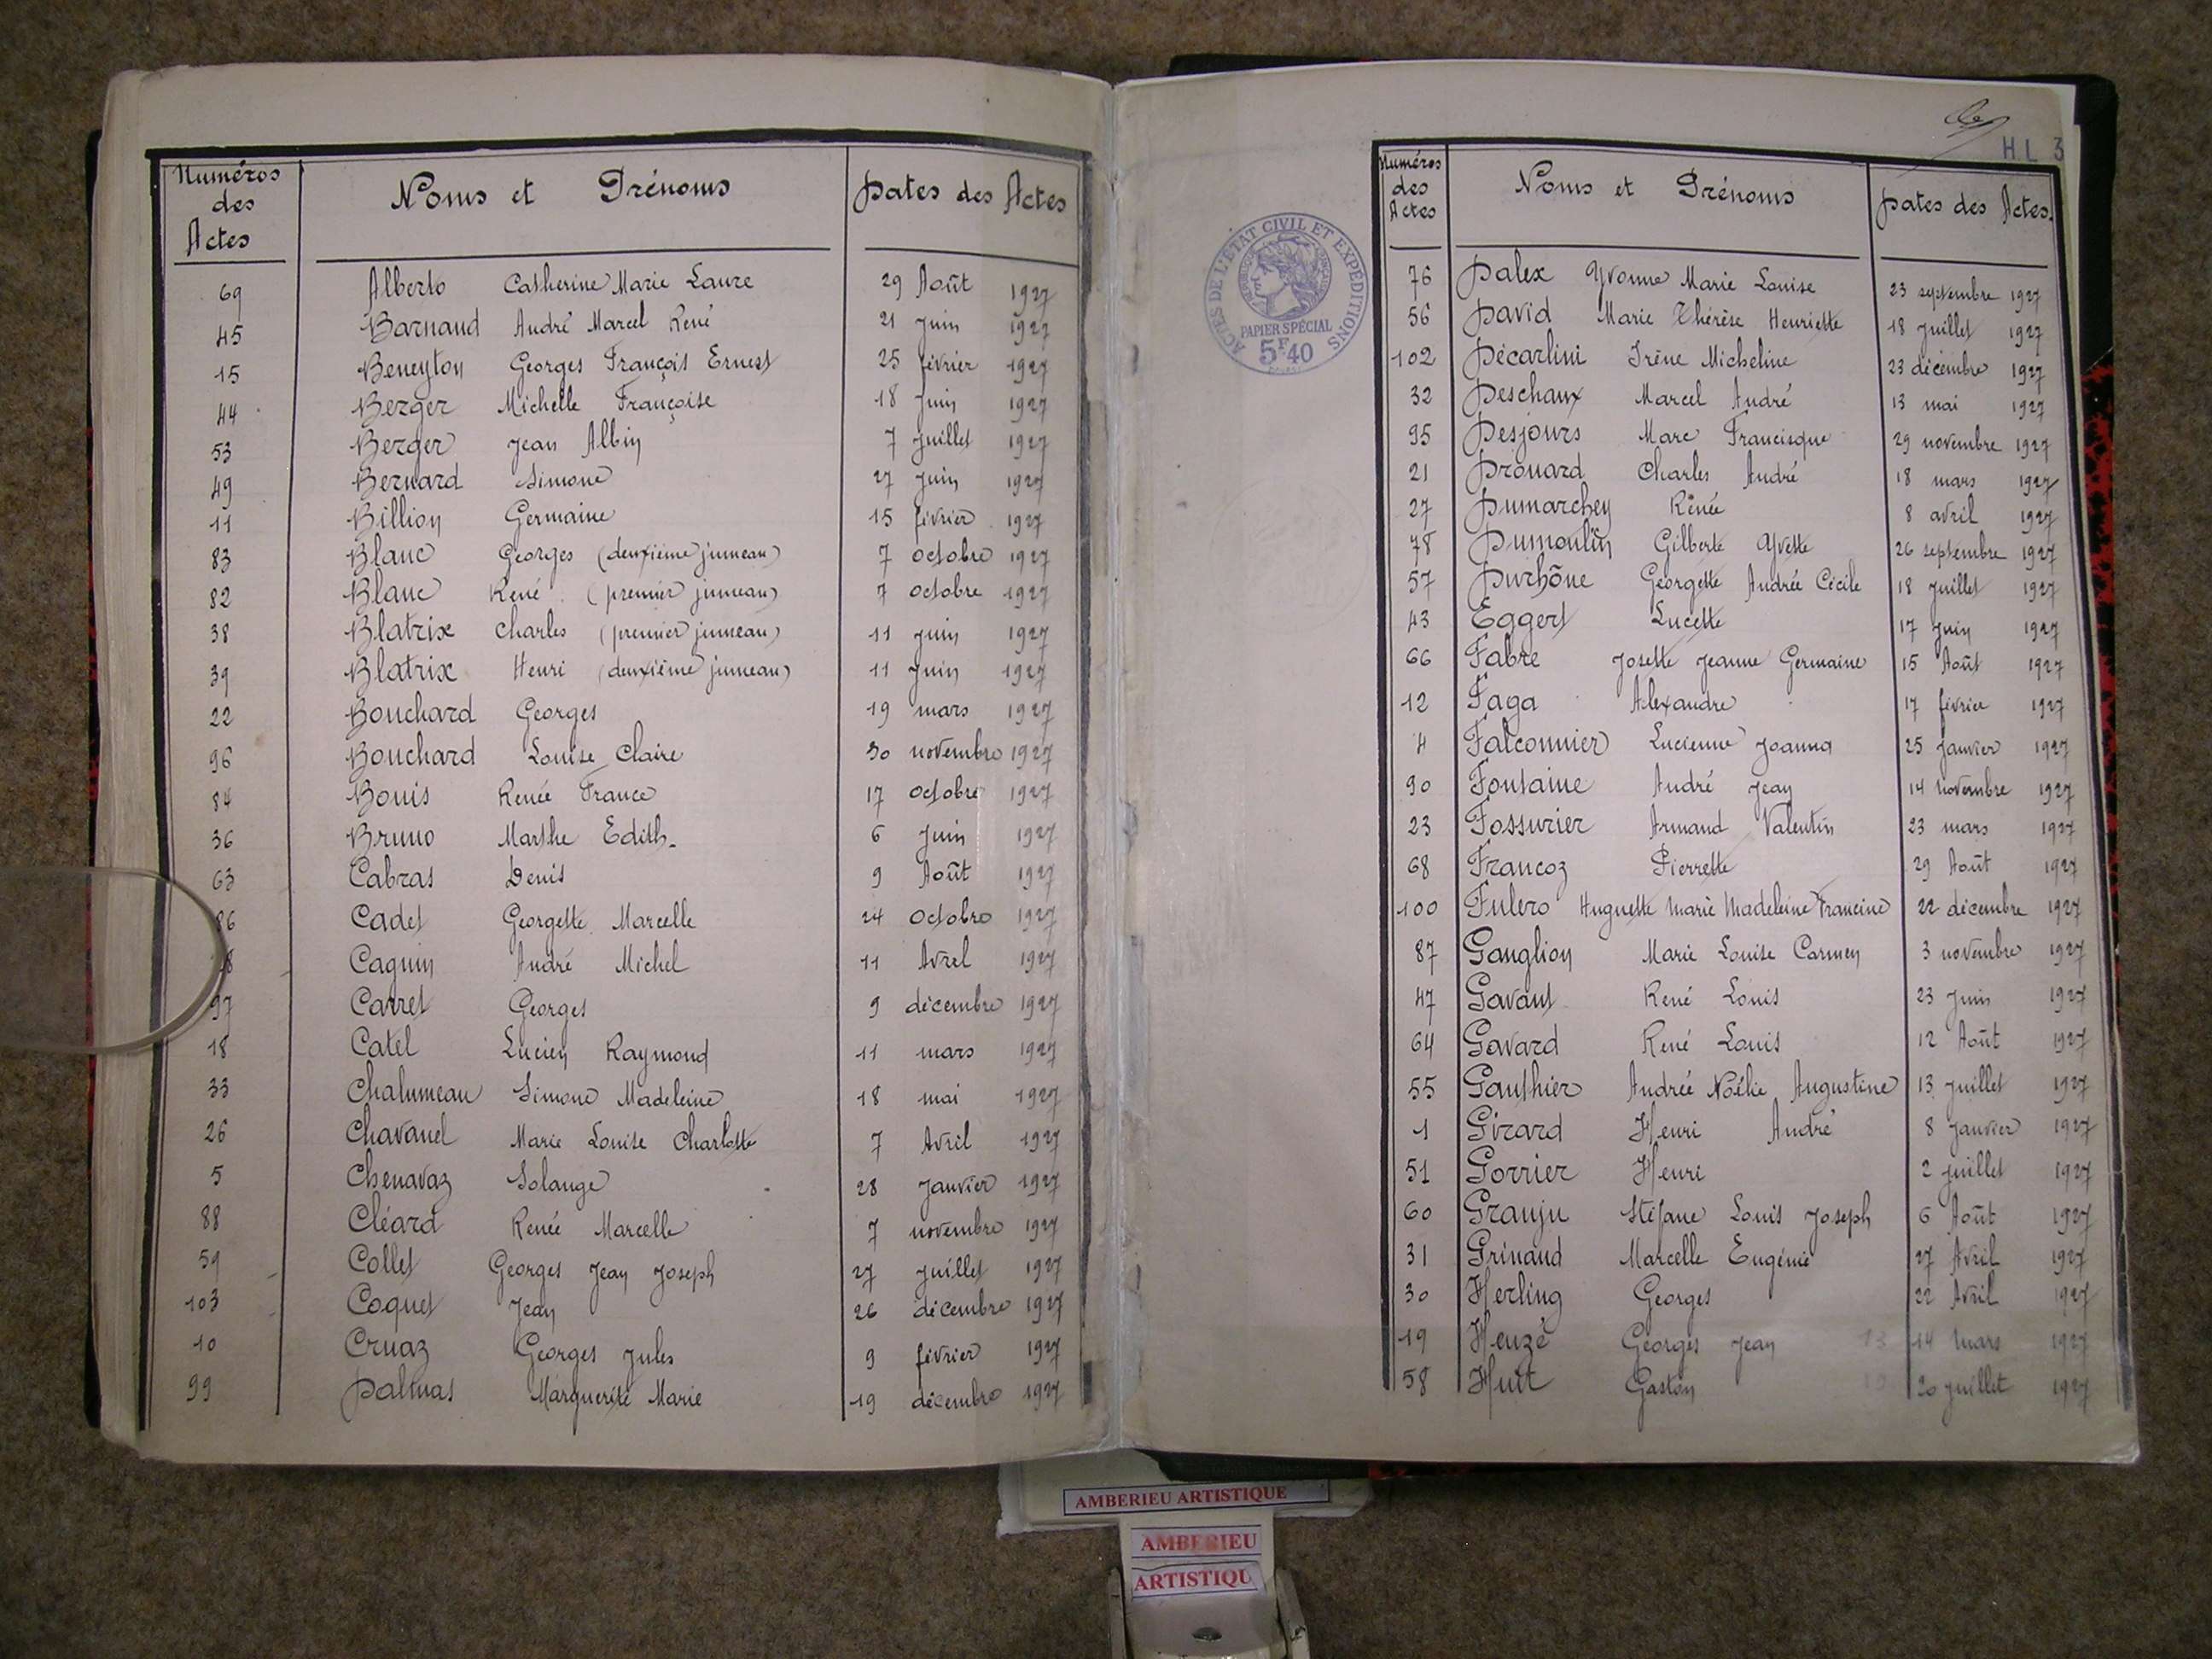 Numéros
des
Actes
Noms et Prénoms
Dates des Actes
69 Alberto Catherine Marie Laure 29 Août 1927
45 Barnaud André Marcel René 21 Juin 1927
15 Beneyton Georges François Ernest 25 février 1927
44 Berger Michelle Françoise 18 Juin 1927
53 Berger Jean Albin 7 Juillet 1927
49 Bernard Simone 27 Juin 1927
11 Billion Germaine 15 février 1927
83 Blanc Georges (deuxième jumeau) 7 octobre 1927
82 Blanc René (premier jumeau) 7 octobre 1927
38 Blatrix Charles (premier jumeau) 11 juin 1927
39 Blatrix Henri (deuxième jumeau) 11 Juin 1927
22 Bouchard Georges 19 mars 1927
96 Bouchard Louise Claire 30 novembre 1927
84 Bouis Renée France 17 octobre 1927
36 Bruno Marthe Edith 6 Juin 1927
63 Cabras Denis 9 Août 1927
86 Cadet Georgette Marcelle 24 Octobre 1927
8 Caguin André Michel 11 Avril 1927
97 Carret Georges 9 décembre 1927
18 Catel Lucien Raymond 11 mars 1927
33 Chalumeau Simone Madeleine 18 mai 1927
26 Chavanel Marie Louise Charlotte 7 Avril 1927
5 Chenavaz Solange 28 Janvier 1927
88 Cléard Renée Marcelle 7 novembre 1927
59 Collet Georges Jean Joseph 27 juillet 1927
103 Coquet Jean 26 décembre 1927
10 Cruaz Georges Jules 9 février 1927
99 Dalmas Marguerite Marie 19 décembre 1927
H.L 3
ACTES DE L'ÉTAT CIVIL ET EXPÉDITIONS
PAPIER SPÉCIAL
5F40
Numéros
des
Actes
Noms et Prénoms
Dates des Actes.
76 Dalex Yvonne Marie Louise 23 septembre 1927
56 David Marie Thérèse Henriette 18 Juillet 1927
102 Décarlini Irène Micheline 23 décembre 1927
32 Deschaux Marcel André 13 mai 1927
95 Desjours Marc Francisque 29 novembre 1927
21 Drouard Charles André 18 mars 1927
27 Dumarchey Renée 8 avril 1927
78 Dumoulin Gilberte Yvette 26 septembre 1927
57 Durhône Georgette Andrée Cécile 18 Juillet 1927
43 Eggert Lucette 17 Juin 1927
66 Fabre Josette Jeanne Germaine 15 Août 1927
12 Faga Alexandre 17 février 1927
4 Falconnier Lucienne Joanna 25 Janvier 1927
90 Fontaine André Jean 14 novembre 1927
23 Fossurier Armand Valentin 23 mars 1927
68 Francoz Pierrette 29 Août 1927
100 Fulero Huguette Marie Madeleine Francine 22 décembre 1927
87 Ganglion Marie Louise Carmen 3 novembre 1927
47 Gavant René Louis 23 Juin 1927
64 Gavard René Louis 12 Août 1927
55 Gauthier Andrée Noélie Augustine 13 Juillet 1927
1 Girard Henri André 8 Janvier 1927
51 Gorrier Henri 2 juillet 1927
60 Granju Stéfane Louis Joseph 6 Août 1927
31 Grinand Marcelle Eugénie 27 Avril 1927
30 Herling Georges 22 Avril 1927
19 Heuzé Georges Jean 14 mars 1927
58 Huit Gaston 20 juillet 1927
AMBERIEU ARTISTIQUE
AMBERIEU
ARTISTIQU